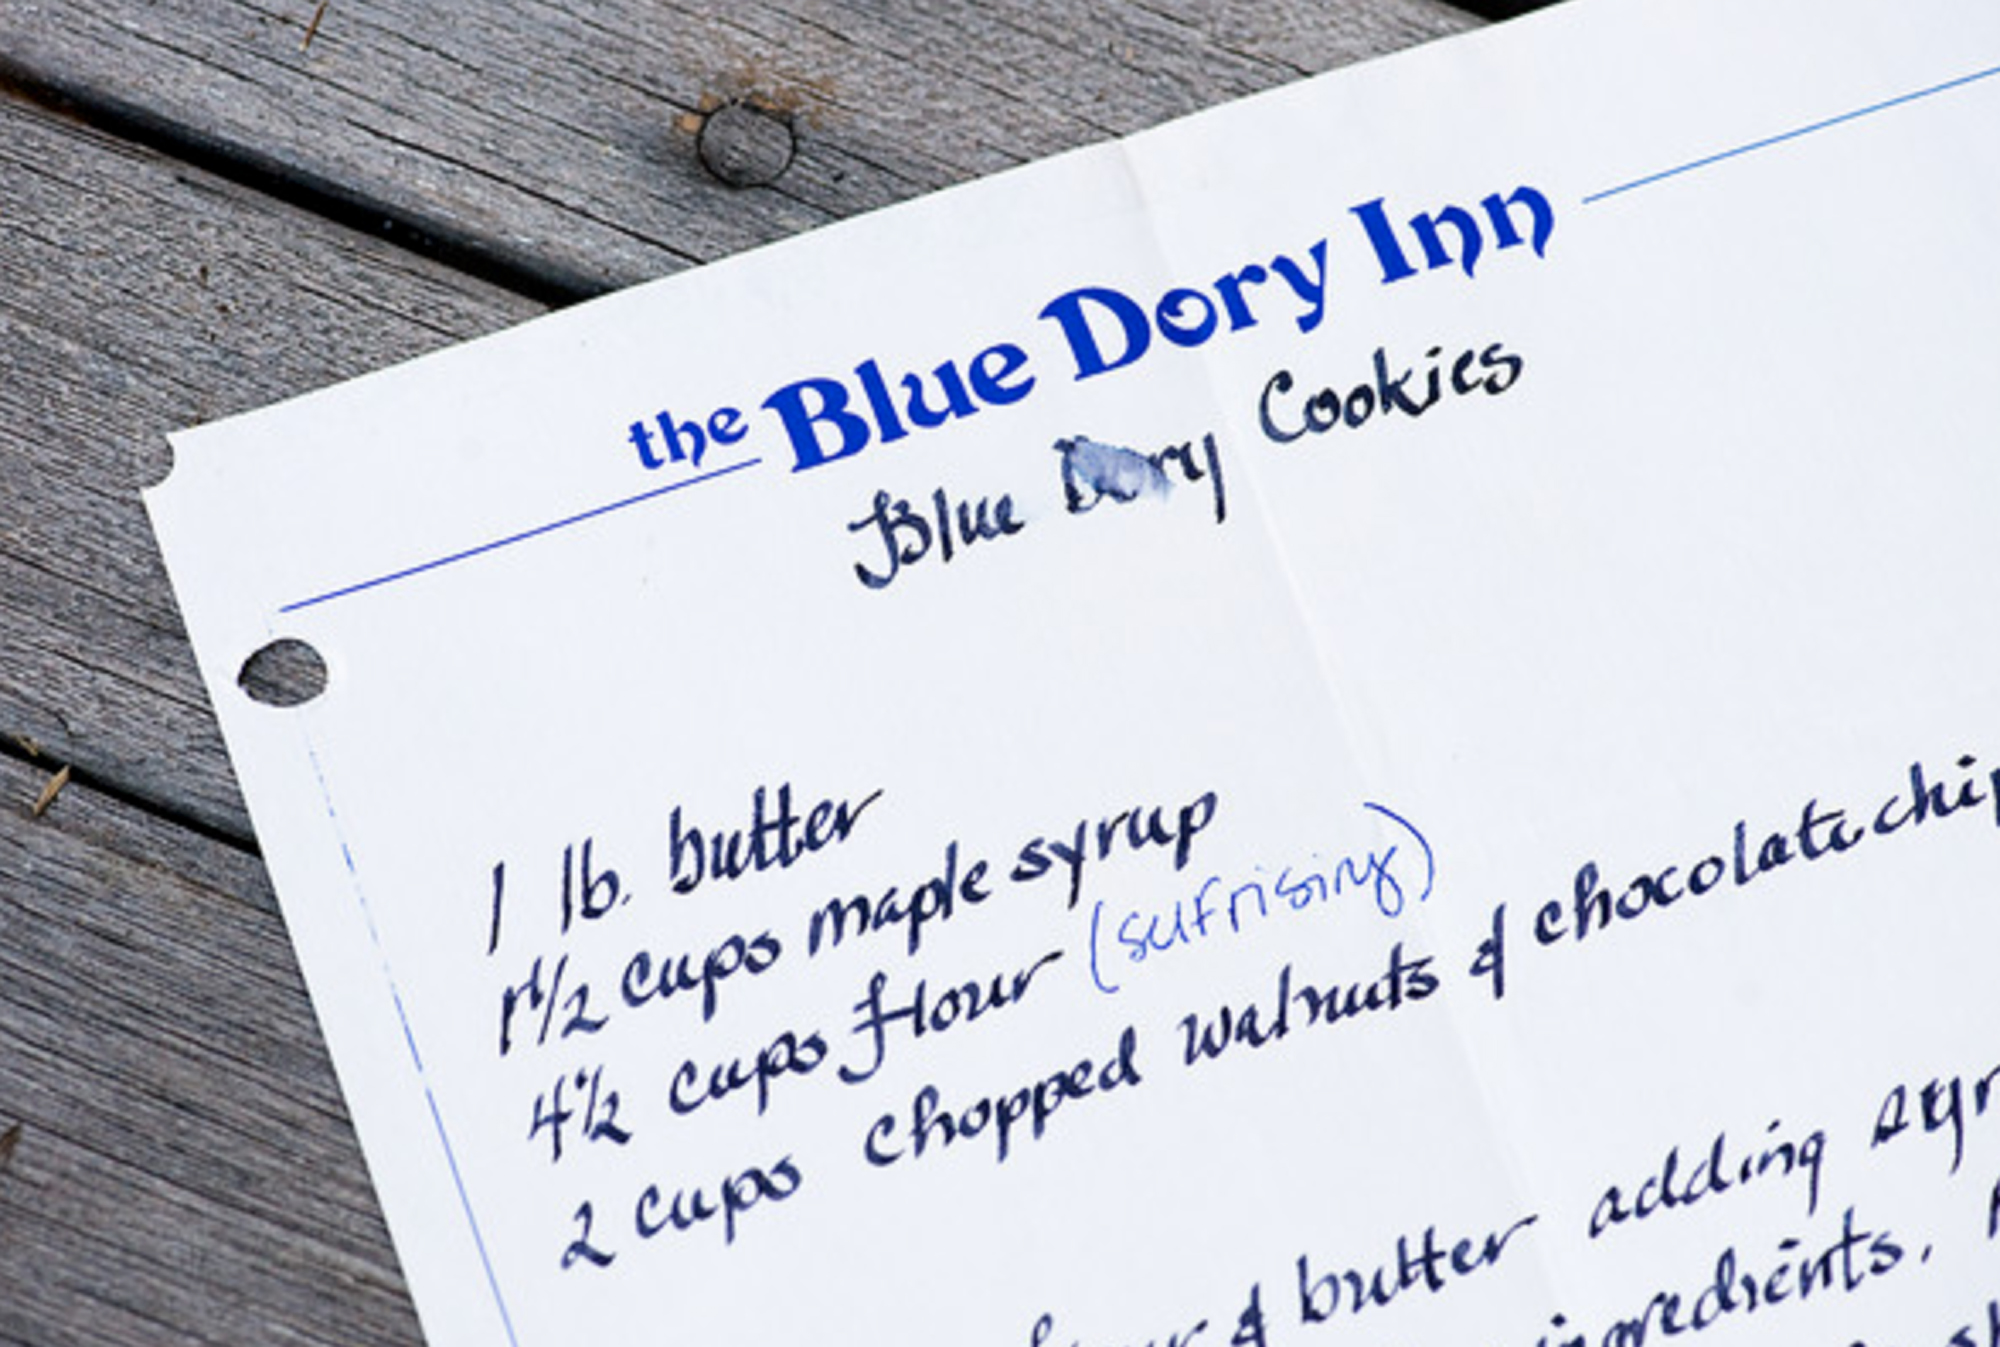 the Blue Dory Inn
Blue Dory Cookies
1 lb. butter
1 1/2 cups maple syrup
4 1/2 cups flour (sufrising)
2 cups chopped walnuts & chocolate chip
& butter adding
ingredients.